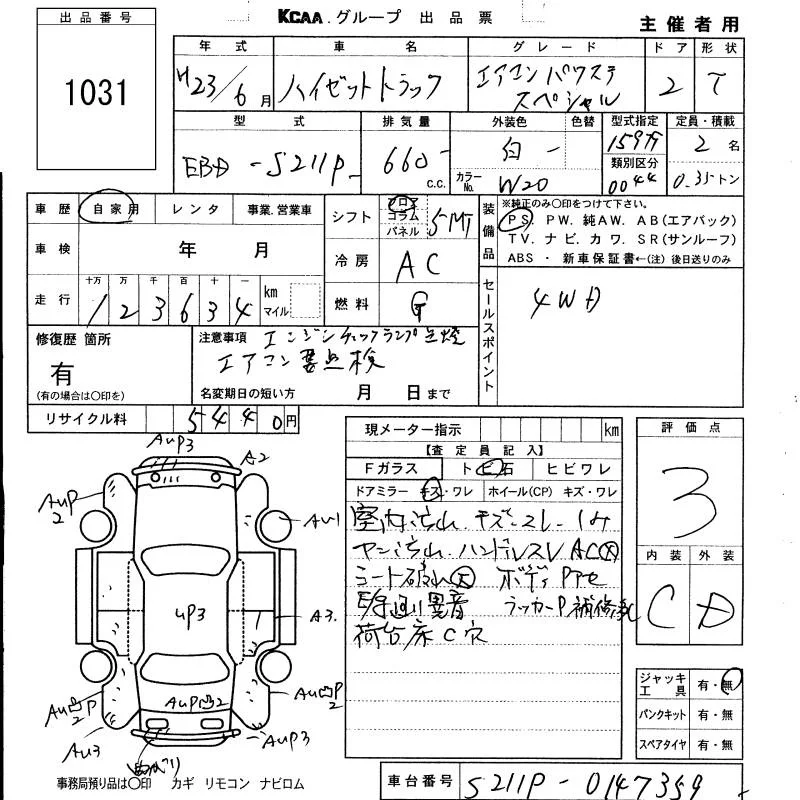 KCAA.グループ 出品票
主催者用
出品番号
1031
年式 車名 グレード ドア 形状
H23/6月 ハイゼットトラック エアコンパワステ 2 T
スペシャル
型式 排気量 外装色 色替 型式指定 定員・積載
EBD-S211P 660 c.c. 白 - 15977 2名
カラーNo. W20 類別区分 0044 0.35トン
車歴 自家用 レンタ 事業.営業車
車検 年 月
走行 十万 万 千 百 十 一
1 2 3 6 3 4 km マイル
シフト フロア コラム パネル 5MT
冷房 AC
燃料 G
装備品
※純正のみ〇印をつけて下さい。
PS. PW. 純AW. AB(エアバック)
TV. ナビ. カワ. SR(サンルーフ)
ABS ・ 新車保証書←(注)後日送りのみ
セールスポイント
4WD
修復歴 箇所
有
(有の場合は〇印を)
注意事項 エンジンチェックランプ点燈
エアコン要点検
名変期日の短い方 月 日まで
リサイクル料 5440円
現メーター指示 km
【査定員記入】
Fガラス ト ビ石 ヒビワレ
ドアミラー キズ・ワレ ホイール(CP) キズ・ワレ
室内汚れ キズ・スレ・しみ
ヤニ汚れ ハンドルスレ AC
シート破れ 大 ボディ
異音 ラッカーP 補修
荷台床C穴
評価点
3
内装 外装
C D
ジャッキ工具 有・無
パンクキット 有・無
スペアタイヤ 有・無
AUP3
A2
AUP2
AU1
UP3
A3
AU凹P2
AUP凹2
AU凹P2
AU3
AUP3
事務局預り品は〇印 カギ リモコン ナビロム
車台番号 S211P-0147359